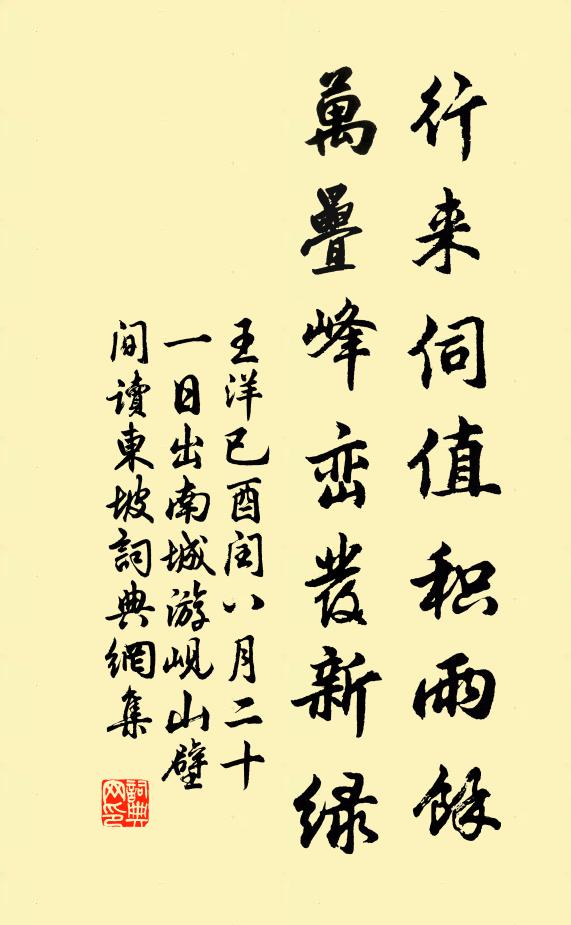 行来伺值积雨餘
萬疊峰峦發新绿
王洋己酉闰八月二十
一日出南城游岘山壁
间讀東坡詞典網集
詞典网印